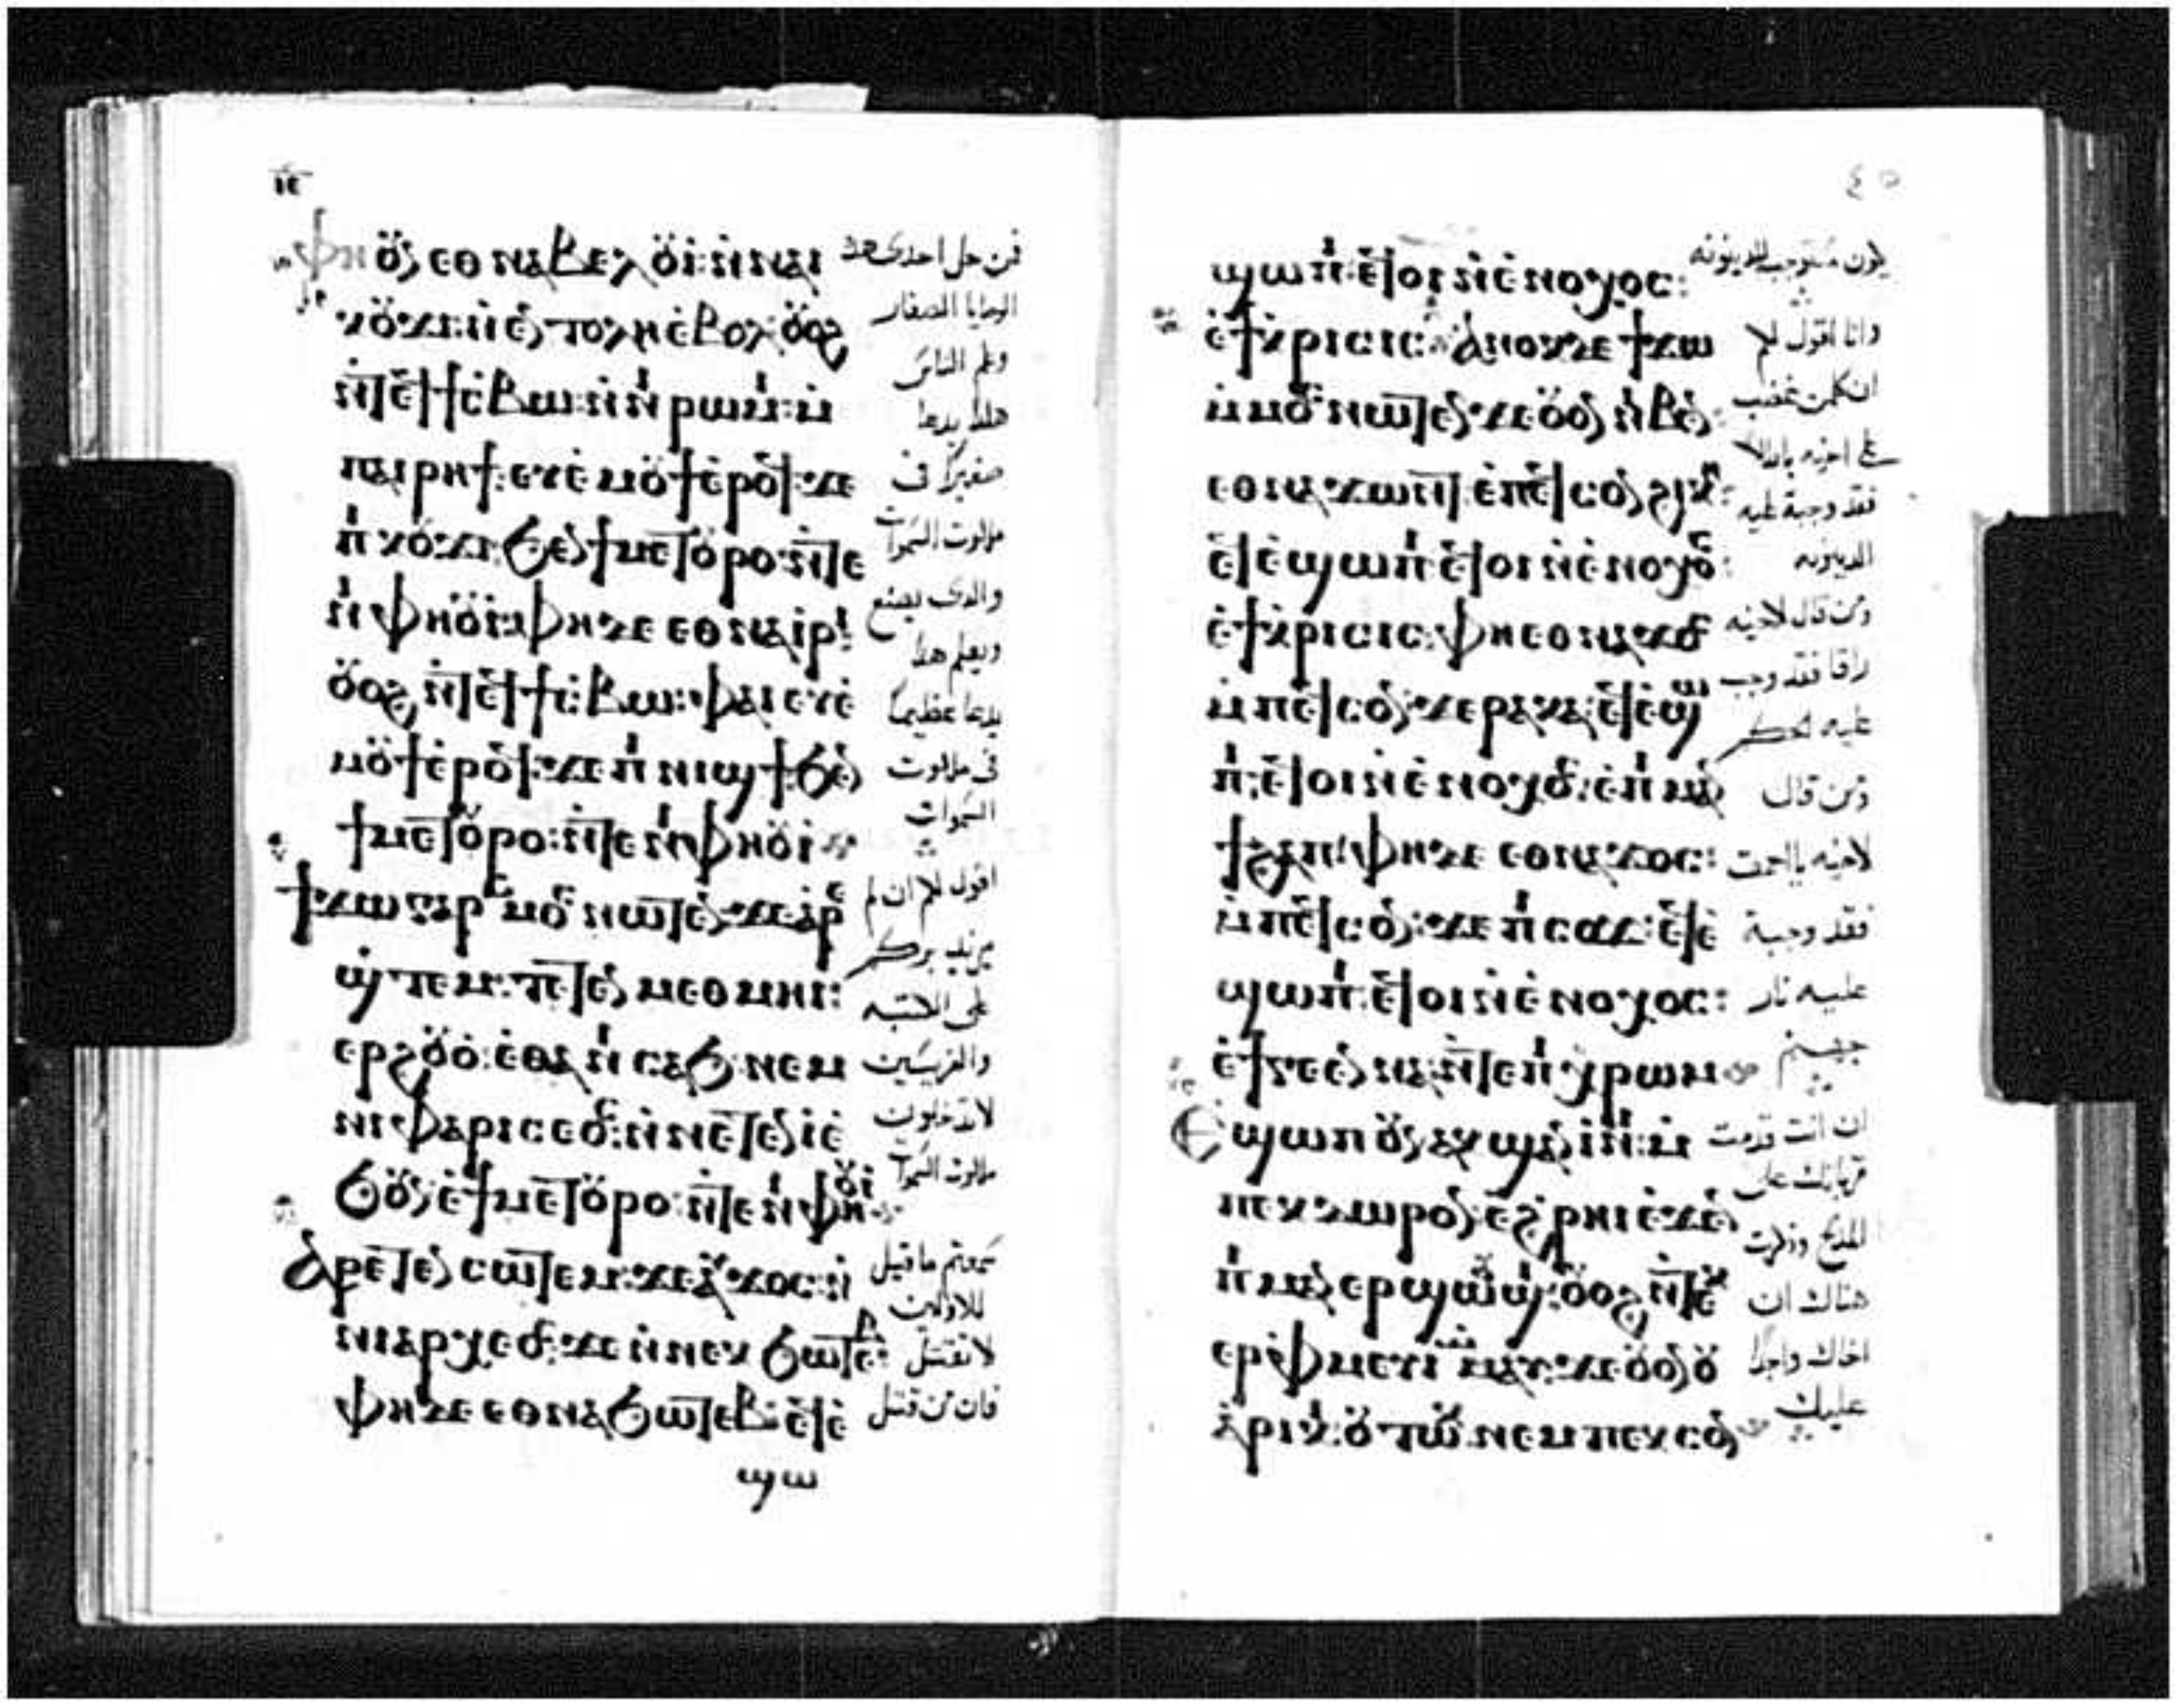 ⲓⲉ
ⲫⲏ ⲟⲩⲛ ⲉⲑⲛⲁⲃⲉⲗ ⲟⲩⲓ ⲛ̀ⲛⲁⲓ
ⲕⲟⲩϫⲓ ⲛ̀ⲉⲛⲧⲟⲗⲏ ⲉ̀ⲃⲟⲗ ⲟⲩⲟϩ
ⲛ̀ⲧⲉϥϯⲥⲃⲱ ⲛ̀ⲛⲓⲣⲱⲙⲓ ⲙ̀
ⲡⲁⲓⲣⲏϯ ⲉⲩⲉ̀ⲙⲟⲩϯ ⲉ̀ⲣⲟϥ ϫⲉ
ⲡⲓⲕⲟⲩϫⲓ ϧⲉⲛ ϯⲙⲉⲧⲟⲩⲣⲟ ⲛ̀ⲧⲉ
ⲛⲓⲫⲏⲟⲩⲓ ⲫⲏ ⲇⲉ ⲉⲑⲛⲁⲓⲣⲓ
ⲟⲩⲟϩ ⲛ̀ⲧⲉϥϯⲥⲃⲱ ⲫⲁⲓ ⲉⲩⲉ̀
ⲙⲟⲩϯ ⲉ̀ⲣⲟϥ ϫⲉ ⲡⲓⲛⲓϣϯ ϧⲉⲛ
ϯⲙⲉⲧⲟⲩⲣⲟ ⲛ̀ⲧⲉ ⲛⲓⲫⲏⲟⲩⲓ
ϯϫⲱ ⲅⲁⲣ ⲙ̀ⲙⲟⲥ ⲛⲱⲧⲉⲛ ϫⲉ ⲁⲣⲉ
ϣ̀ⲧⲉⲙ ⲧⲉⲧⲉⲛⲙⲉⲑⲙⲏⲓ
ⲉⲣϩⲟⲩⲟ̀ ⲉ̀ⲑⲁ ⲛⲓⲥⲁϧ ⲛⲉⲙ
ⲛⲓⲫⲁⲣⲓⲥⲉⲟⲥ ⲛ̀ⲛⲉⲧⲉⲛⲓ̀ ⲉ̀
ϧⲟⲩⲛ ⲉ̀ϯⲙⲉⲧⲟⲩⲣⲟ ⲛ̀ⲧⲉ ⲛⲓⲫⲏⲟⲩⲓ
ⲁⲣⲉⲧⲉⲛⲥⲱⲧⲉⲙ ϫⲉ ⲁⲩϫⲟⲥ ⲛ̀
ⲛⲓⲁⲣⲭⲉⲟⲥ ϫⲉ ⲛ̀ⲛⲉⲕϧⲱⲧⲉⲃ
ⲫⲏ ⲇⲉ ⲉⲑⲛⲁϧⲱⲧⲉⲃ ⲉϥⲉ̀
ϣⲱ
فمن حل احدى هذه
الوصايا الصغار
وعلم الناس
هكذا يدعا
صغيرا في
ملكوت السموات
والذي يصنع
ويعلم هذا
يدعا عظيما
في ملكوت
السموات
اقول لكم ان لم
يزيد بركم
على الكتبه
والفريسيين
لا تدخلون
ملكوت السموات
سمعتم ما قيل
للاولين
لا تقتل
فان من قتل
٤٥
ϣⲱⲡⲓ ⲉϥⲟⲓ ⲛ̀ⲉ̀ⲛⲟⲭⲟⲥ
ⲉ̀ϯⲕⲣⲓⲥⲓⲥ ⲁⲛⲟⲕ ⲇⲉ ϯϫⲱ
ⲙ̀ⲙⲟⲥ ⲛⲱⲧⲉⲛ ϫⲉ ⲟⲩⲟⲛ ⲛⲓⲃⲉⲛ
ⲉⲑⲛⲁϫⲱⲛⲧ ⲉ̀ⲡⲉϥⲥⲟⲛ ϩⲓⲕⲏ
ⲉϥⲉ̀ϣⲱⲡⲓ ⲉϥⲟⲓ ⲛ̀ⲉ̀ⲛⲟⲭⲟⲥ
ⲉ̀ϯⲕⲣⲓⲥⲓⲥ ⲫⲏ ⲉⲑⲛⲁϫⲟⲥ
ⲙ̀ⲡⲉϥⲥⲟⲛ ϫⲉ ⲣⲁⲕⲁ ⲉϥⲉ̀ϣⲱ
ⲡⲓ ⲉϥⲟⲓ ⲛ̀ⲉ̀ⲛⲟⲭⲟⲥ ⲉ̀ⲡⲓⲙⲁⲛ
ϯϩⲁⲡ ⲫⲏ ⲇⲉ ⲉⲑⲛⲁϫⲟⲥ
ⲙ̀ⲡⲉϥⲥⲟⲛ ϫⲉ ⲡⲓⲥⲟϫ ⲉϥⲉ̀
ϣⲱⲡⲓ ⲉϥⲟⲓ ⲛ̀ⲉ̀ⲛⲟⲭⲟⲥ
ⲉ̀ϯⲅⲉⲉⲛⲛⲁ ⲛ̀ⲧⲉ ⲡⲓⲭⲣⲱⲙ
Ⲉϣⲱⲡ ⲟⲩⲛ ⲁⲕϣⲁⲛⲓⲛⲓ ⲙ̀
ⲡⲉⲕⲇⲱⲣⲟⲛ ⲉ̀ϩⲣⲏⲓ ⲉ̀ϫⲉⲛ
ⲡⲓⲙⲁⲛⲉⲣϣⲱⲟⲩϣⲓ ⲟⲩⲟϩ ⲛ̀ⲧⲉⲕ
ⲉⲣⲫⲙⲉⲩⲓ ⲙ̀ⲙⲁⲩ ϫⲉ ⲟⲩⲟⲛ ⲟⲩ
ⲁⲣⲓⲕⲓ ⲟⲩⲧⲱⲕ ⲛⲉⲙ ⲡⲉⲕⲥⲟⲛ
يكون مستوجب للدينونه
وانا اقول لكم
ان كل من غضب
على اخيه باطلا
فقد وجبة عليه
الدينونه
ومن قال لاخيه
راقا فقد وجب
عليه الحكم
ومن قال
لاخيه يا احمق
فقد وجبة
عليه نار
جهنم
ان انت قدمت
قربانك على
المذبح وذكرت
هناك ان
اخاك واجدا
عليك